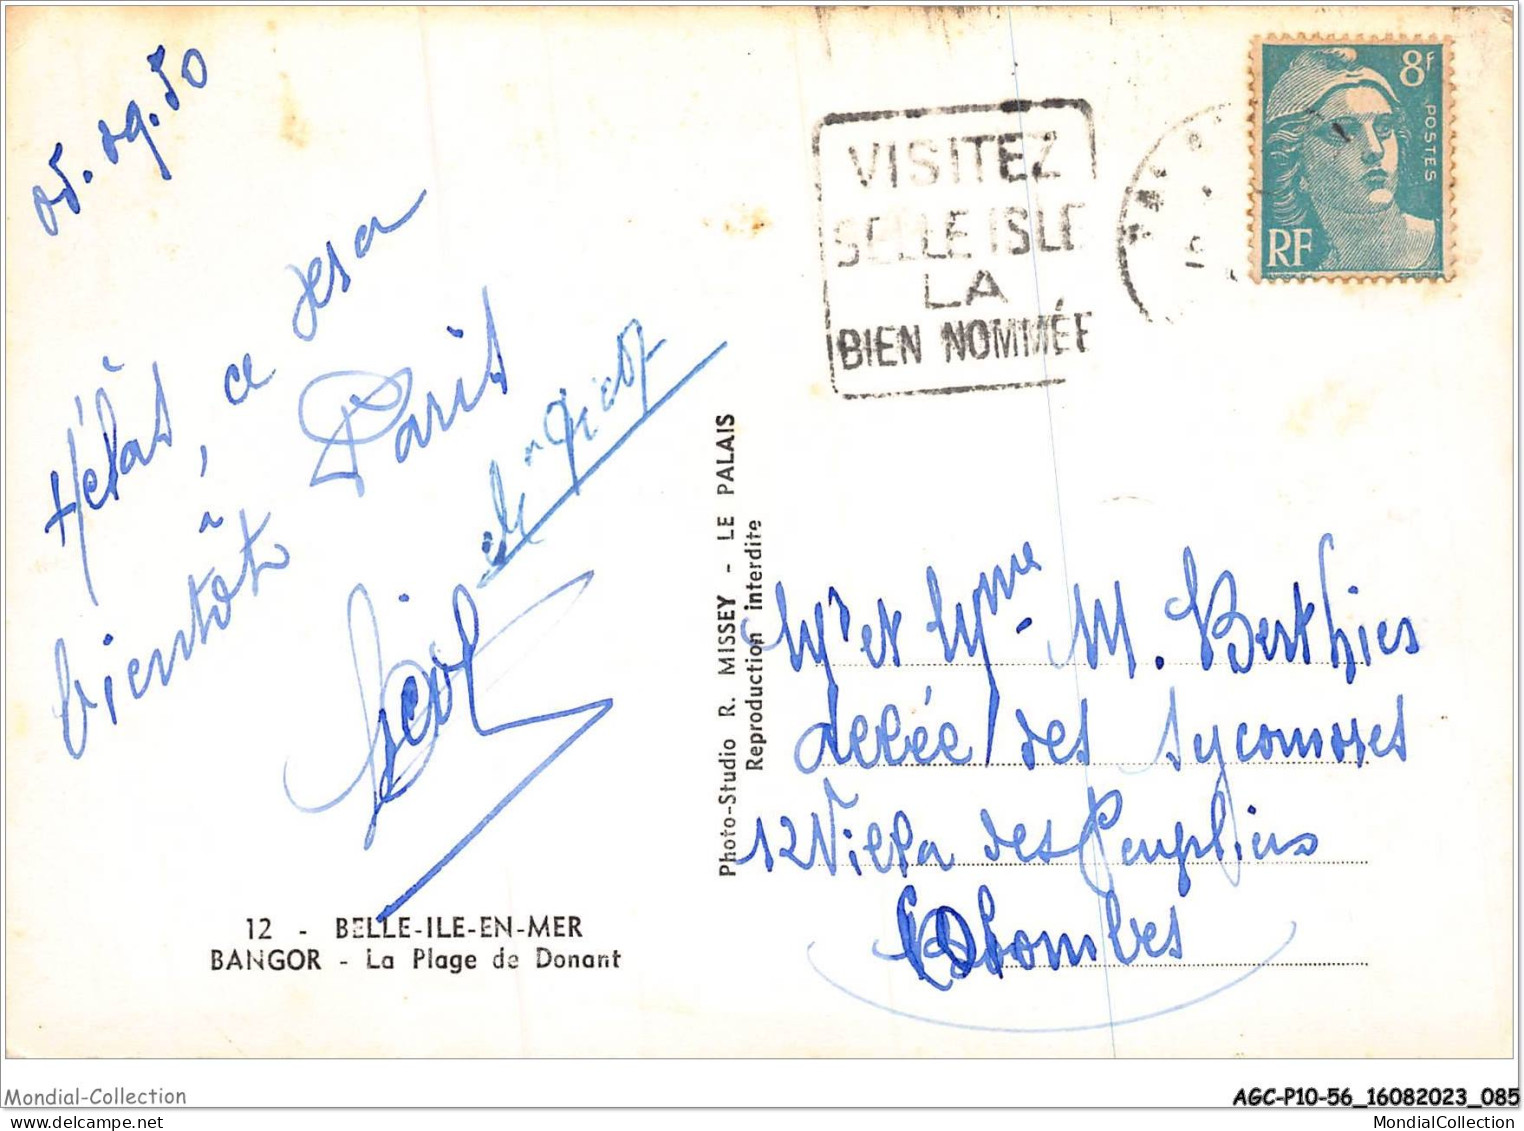 05.09.50
Hélas, ce sera
bientôt à Paris
12 - BELLE-ILE-EN-MER
BANGOR - La Plage de Donant
Photo-Studio R. MISSEY - LE PALAIS
Reproduction interdite
VISITEZ
BELLE ISLE
LA
BIEN NOMMÉE
8f
POSTES
RF
Mr et Mme M. Berthier
allée des Sycomores
12 Villa des Peupliers
Colombes
Mondial-Collection
AGC-P10-56_16082023_085
MondialCollection